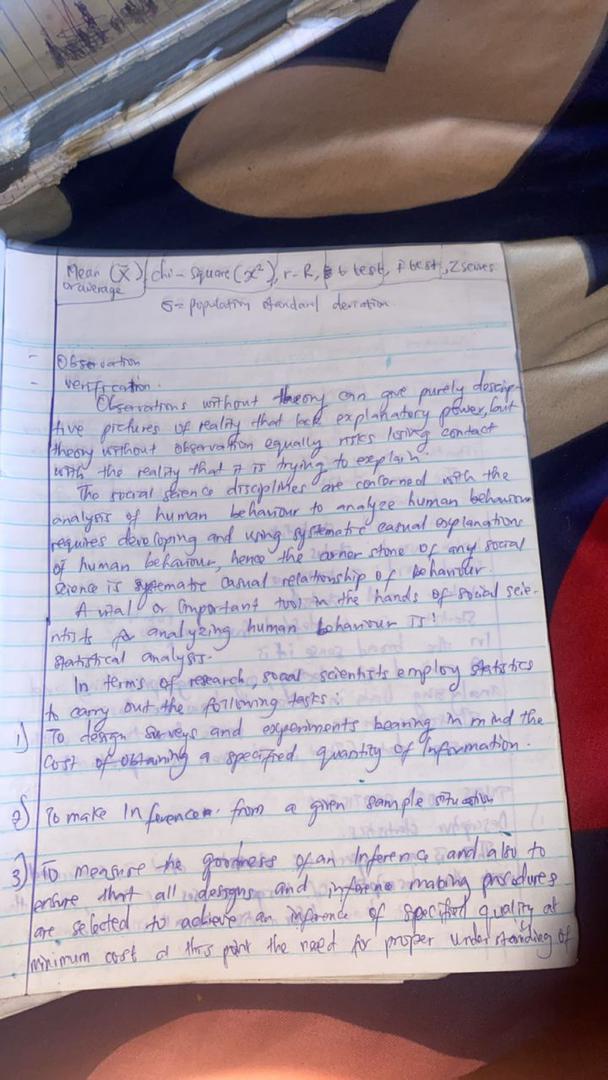 Mean (x̄) chi-square (x²), r-R, t test, F test, Z scores
or average
σ= population standard deviation
- Observation
- verification.
Observations without theory can give purely descrip-
tive pictures of reality that lack explanatory power, but
theory without observation equally risks losing contact
with the reality that it is trying to explain.
The social science disciplines are concerned with the
analysis of human behaviour to analyze human behaviour
requires developing and using systematic casual explanations
of human behaviour, hence the corner stone of any social
science is systematic casual relationship of behaviour
A vital or important tool in the hands of social scie-
ntists for analyzing human behaviour is:
statistical analysis.
In terms of research, social scientists employ statistics
to carry out the following tasks:
1) To design surveys and experiments bearing in mind the
cost of obtaining a specified quantity of Information.
2) To make Inference from a given sample situation
3) To measure the goodness of an Inference and also to
ensure that all designs and inference making procedures
are selected to achieve an inference of specified quality at
minimum cost at this point the need for proper understanding of